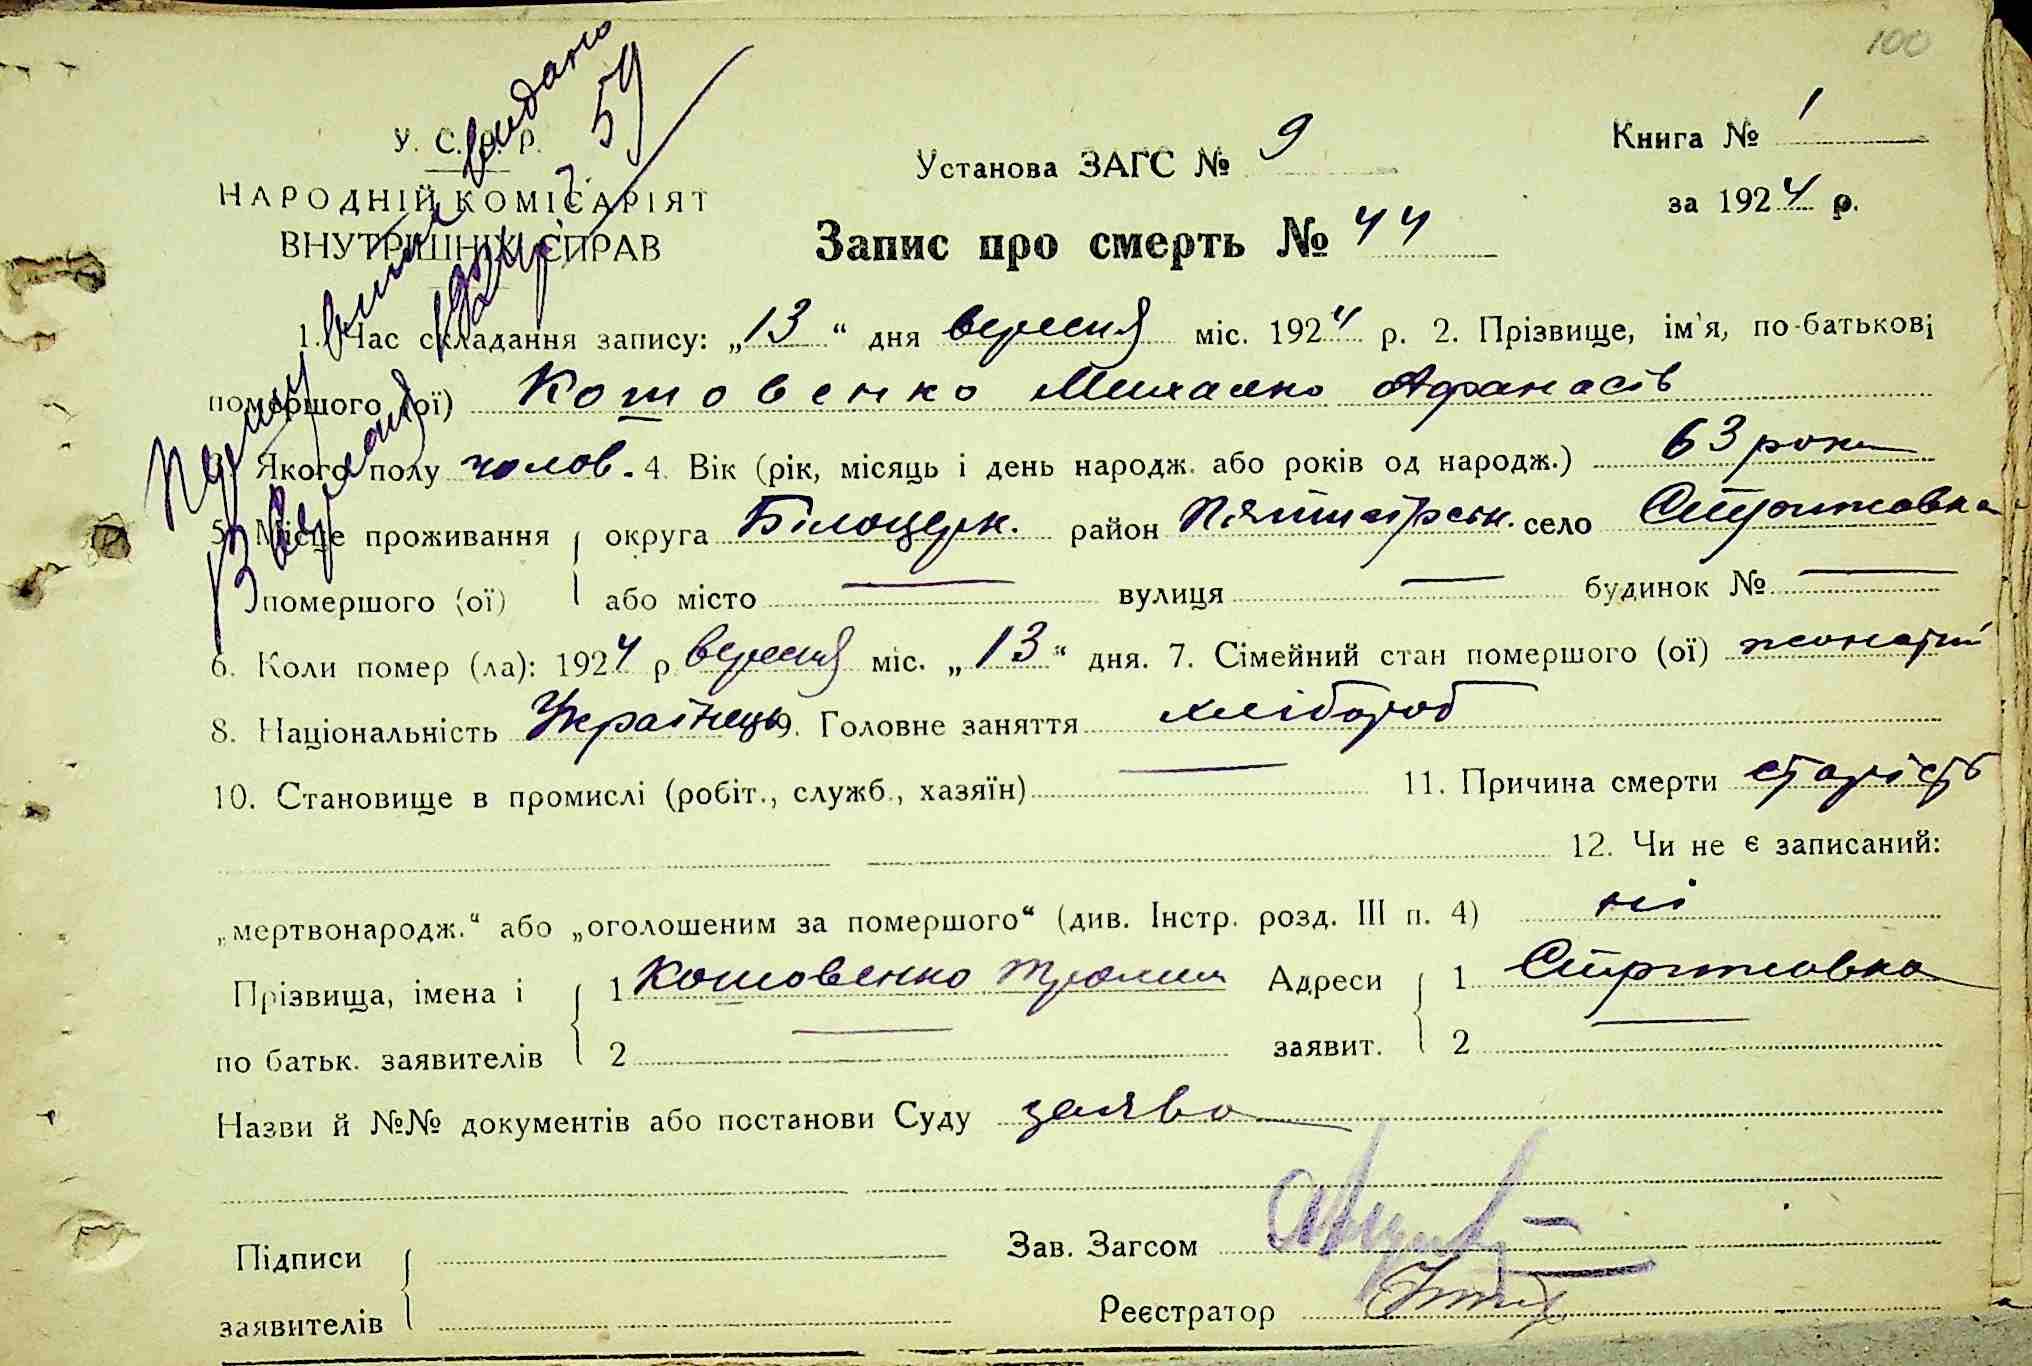 100
У. С. Р. Р.
НАРОДНІЙ КОМІСАРІЯТ
ВНУТРІШНІХ СПРАВ
Установа ЗАГС № 9
Книга № 1
за 1924 р.
Запис про смерть № 44
видано
59
1. Час складання запису: „13“ дня вересня міс. 1924 р. 2. Прізвище, ім'я, по-батькові
помершого (ої) Котовенко Михайло Афанасів
3. Якого полу чолов. 4. Вік (рік, місяць і день народж. або років од народж.) 63 роки
5. Місце проживання округа Білоцерк. район П'ятигірськ. село Стрижавка
помершого (ої) або місто — вулиця — будинок № —
6. Коли помер (ла): 1924 р вересня міс. „13“ дня. 7. Сімейний стан помершого (ої) жонатий
8. Національність Українець 9. Головне заняття хлібороб
10. Становище в промислі (робіт., служб., хазяїн) — 11. Причина смерти старість
12. Чи не є записаний:
„мертвонародж.“ або „оголошеним за помершого“ (див. Інстр. розд. III п. 4) ні
Прізвища, імена і 1 Котовенко Адреси 1 Стрижавка
по батьк. заявителів 2 — заявит. 2 —
Назви й №№ документів або постанови Суду заява
Підписи Зав. Загсом
заявителів Реєстратор